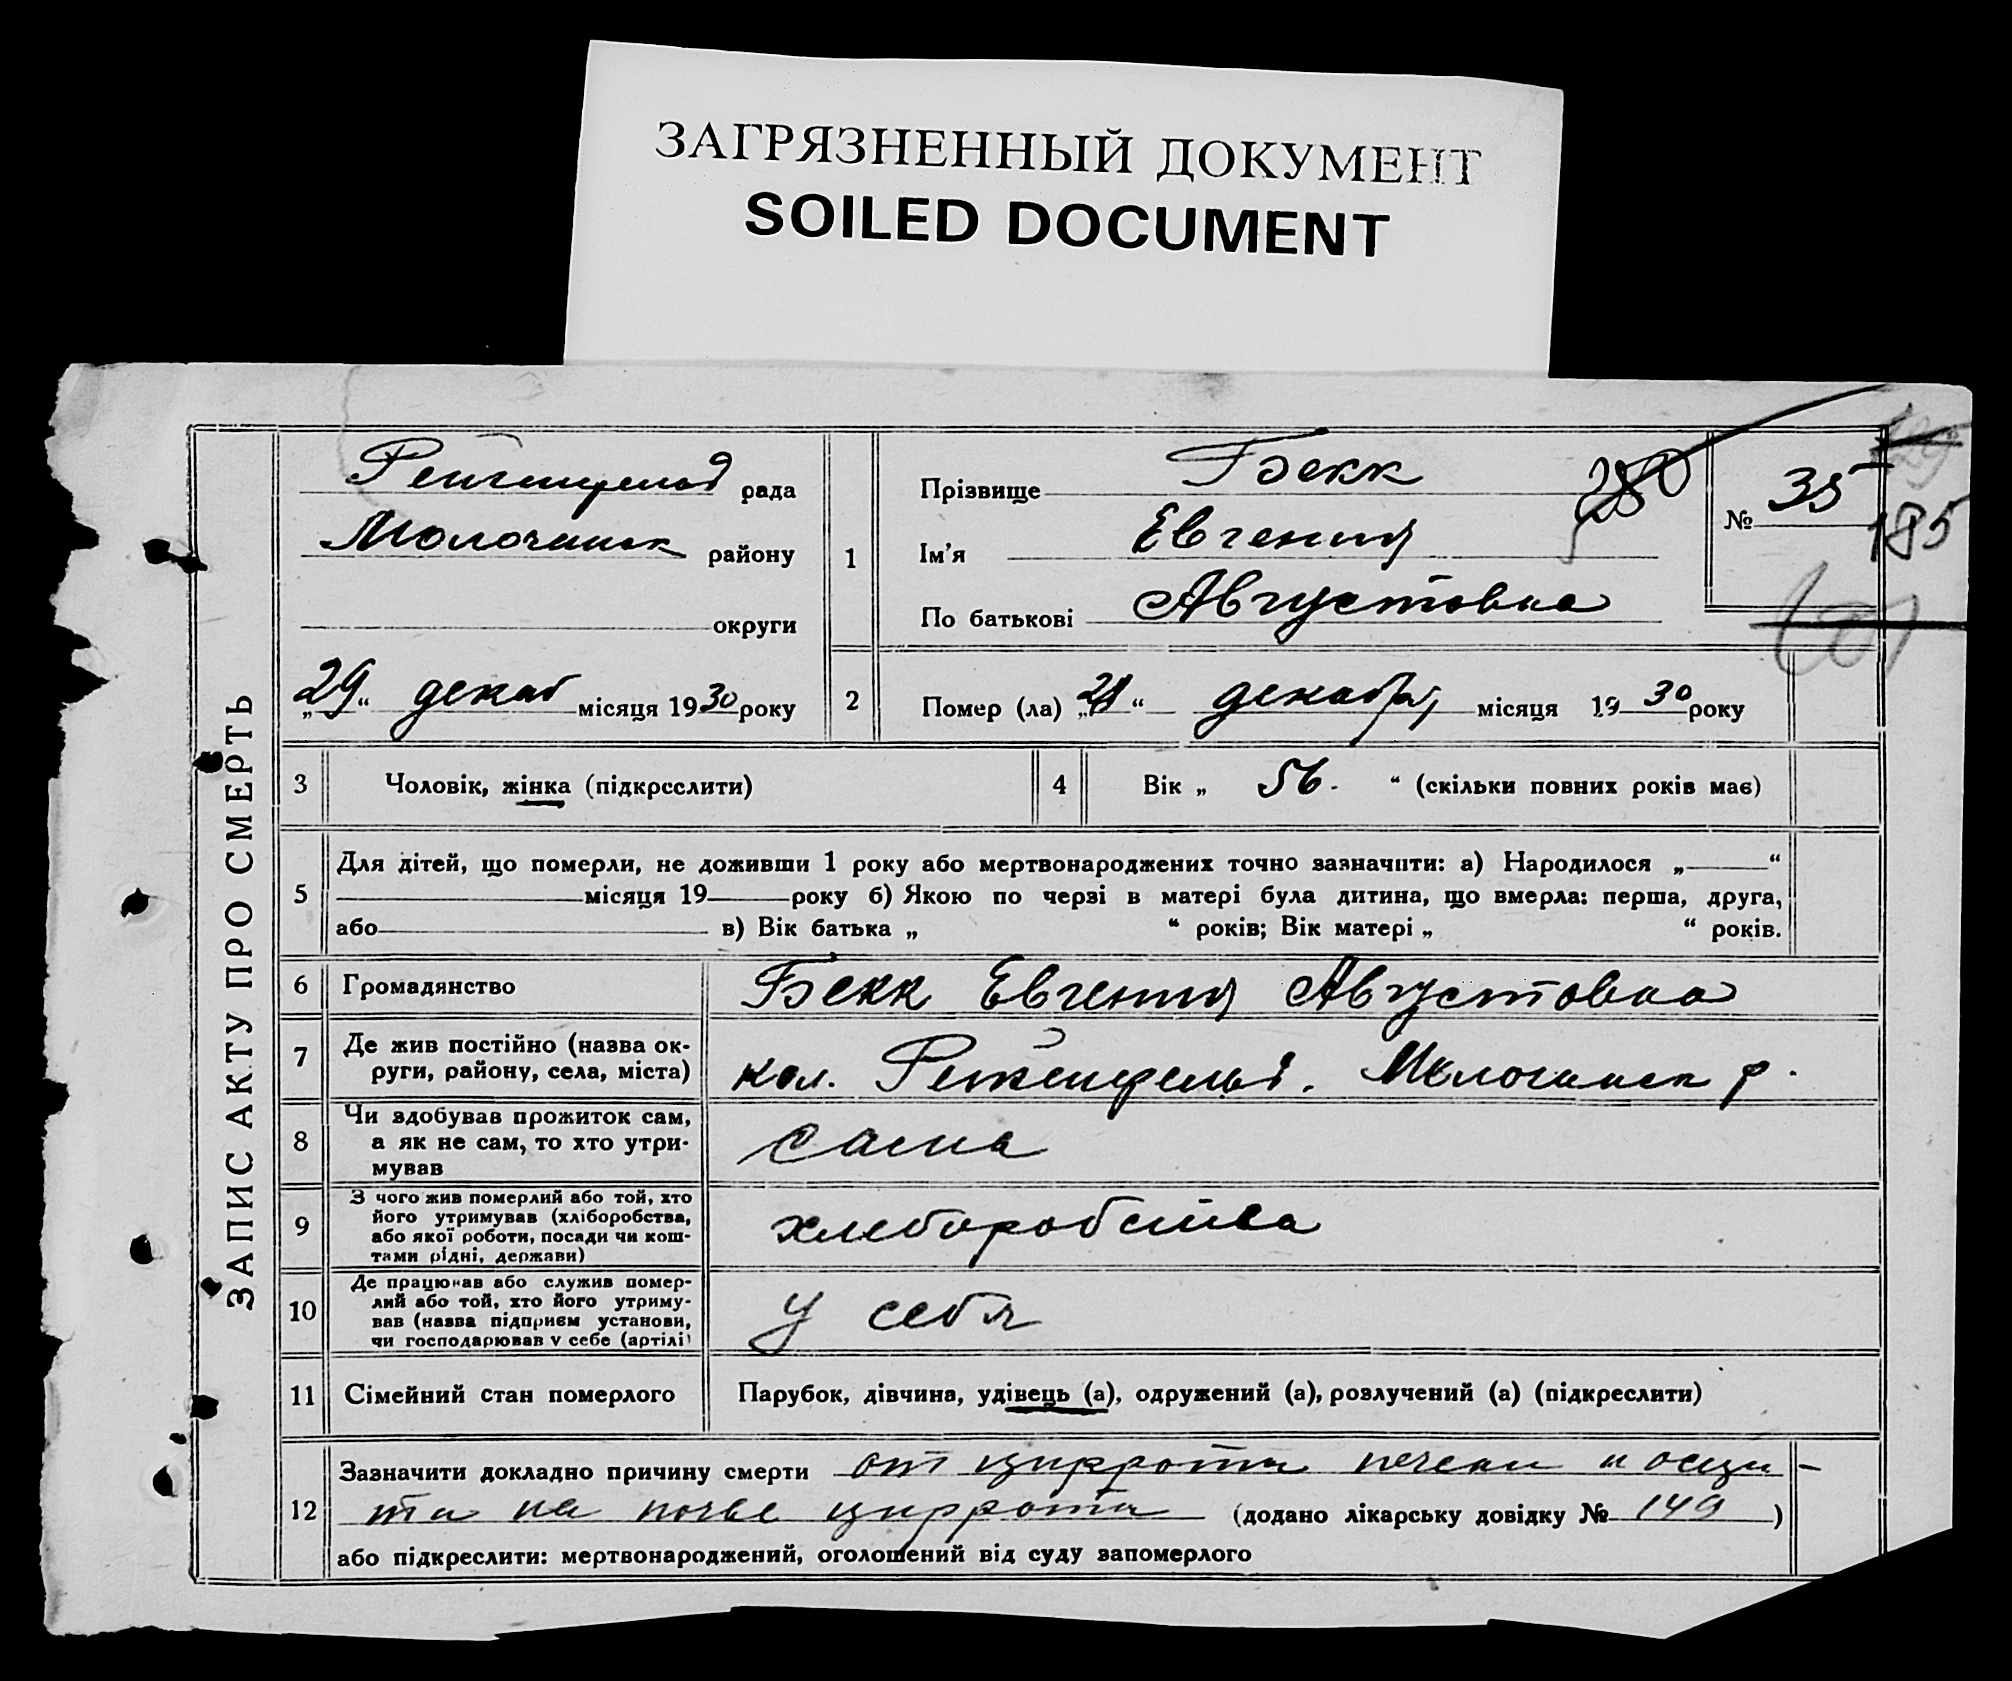 ЗАГРЯЗНЕННЫЙ ДОКУМЕНТ
SOILED DOCUMENT
ЗАПИС АКТУ ПРО СМЕРТЬ
рада
Молочанск району
округи
„29“ декаб місяця 1930 року
1
Прізвище Бекк
Ім'я Евгения
По батькові Августовна
280
№ 35
185
2
Помер (ла) „ “ декабря місяця 1930 року
3 Чоловік, жінка (підкреслити)
4 Вік „ 56. “ (скільки повних років має)
5 Для дітей, що померли, не доживши 1 року або мертвонароджених точно зазначити: а) Народилося „ “
місяця 19 року б) Якою по черзі в матері була дитина, що вмерла: перша, друга,
або в) Вік батька „ “ років; Вік матері „ “ років.
6 Громадянство Бекк Евгения Августовна
7 Де жив постійно (назва ок-
руги, району, села, міста) кол. Молочанск р.
8 Чи здобував прожиток сам,
а як не сам, то хто утри-
мував
сама
9 З чого жив померлий або той, хто
його утримував (хліборобства,
або якої роботи, посади чи кош-
тами рідні, держави)
хлеборобства
10 Де працював або служив помер-
лий або той, хто його утриму-
вав (назва підприєм установи,
чи господарював у себе (артілі)
у себя
11 Сімейний стан померлого Парубок, дівчина, удівець (а), одружений (а), розлучений (а) (підкреслити)
12 Зазначити докладно причину смерти от цирроти печени и осци-
та на почве цирроти (додано лікарську довідку № 149 )
або підкреслити: мертвонароджений, оголошений від суду запомерлого